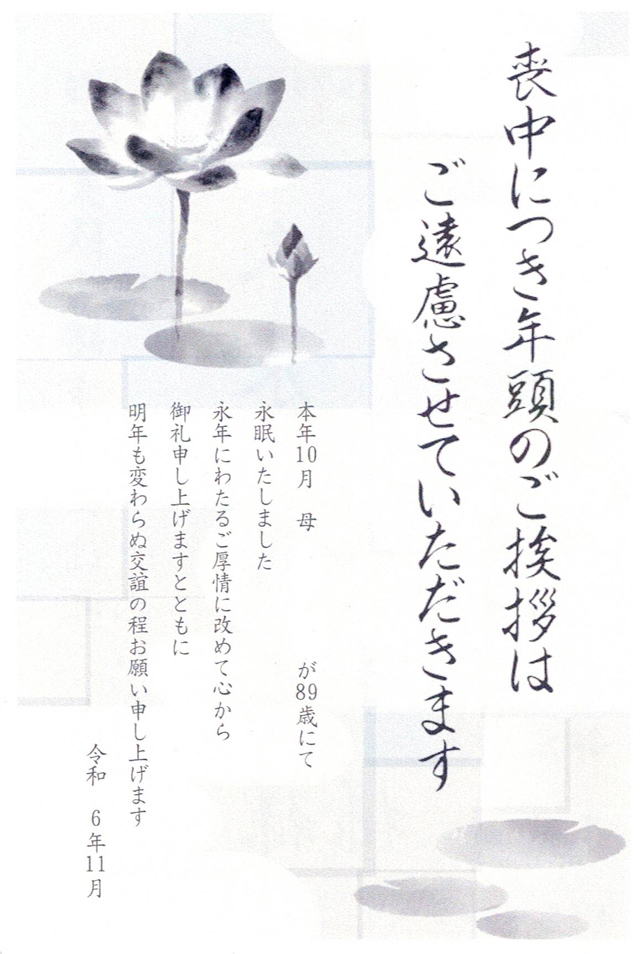 喪中につき年頭のご挨拶は
ご遠慮させていただきます
本年10月　母　　　　　が89歳にて
永眠いたしました
永年にわたるご厚情に改めて心から
御礼申し上げますとともに
明年も変わらぬ交誼の程お願い申し上げます
令和　6年11月